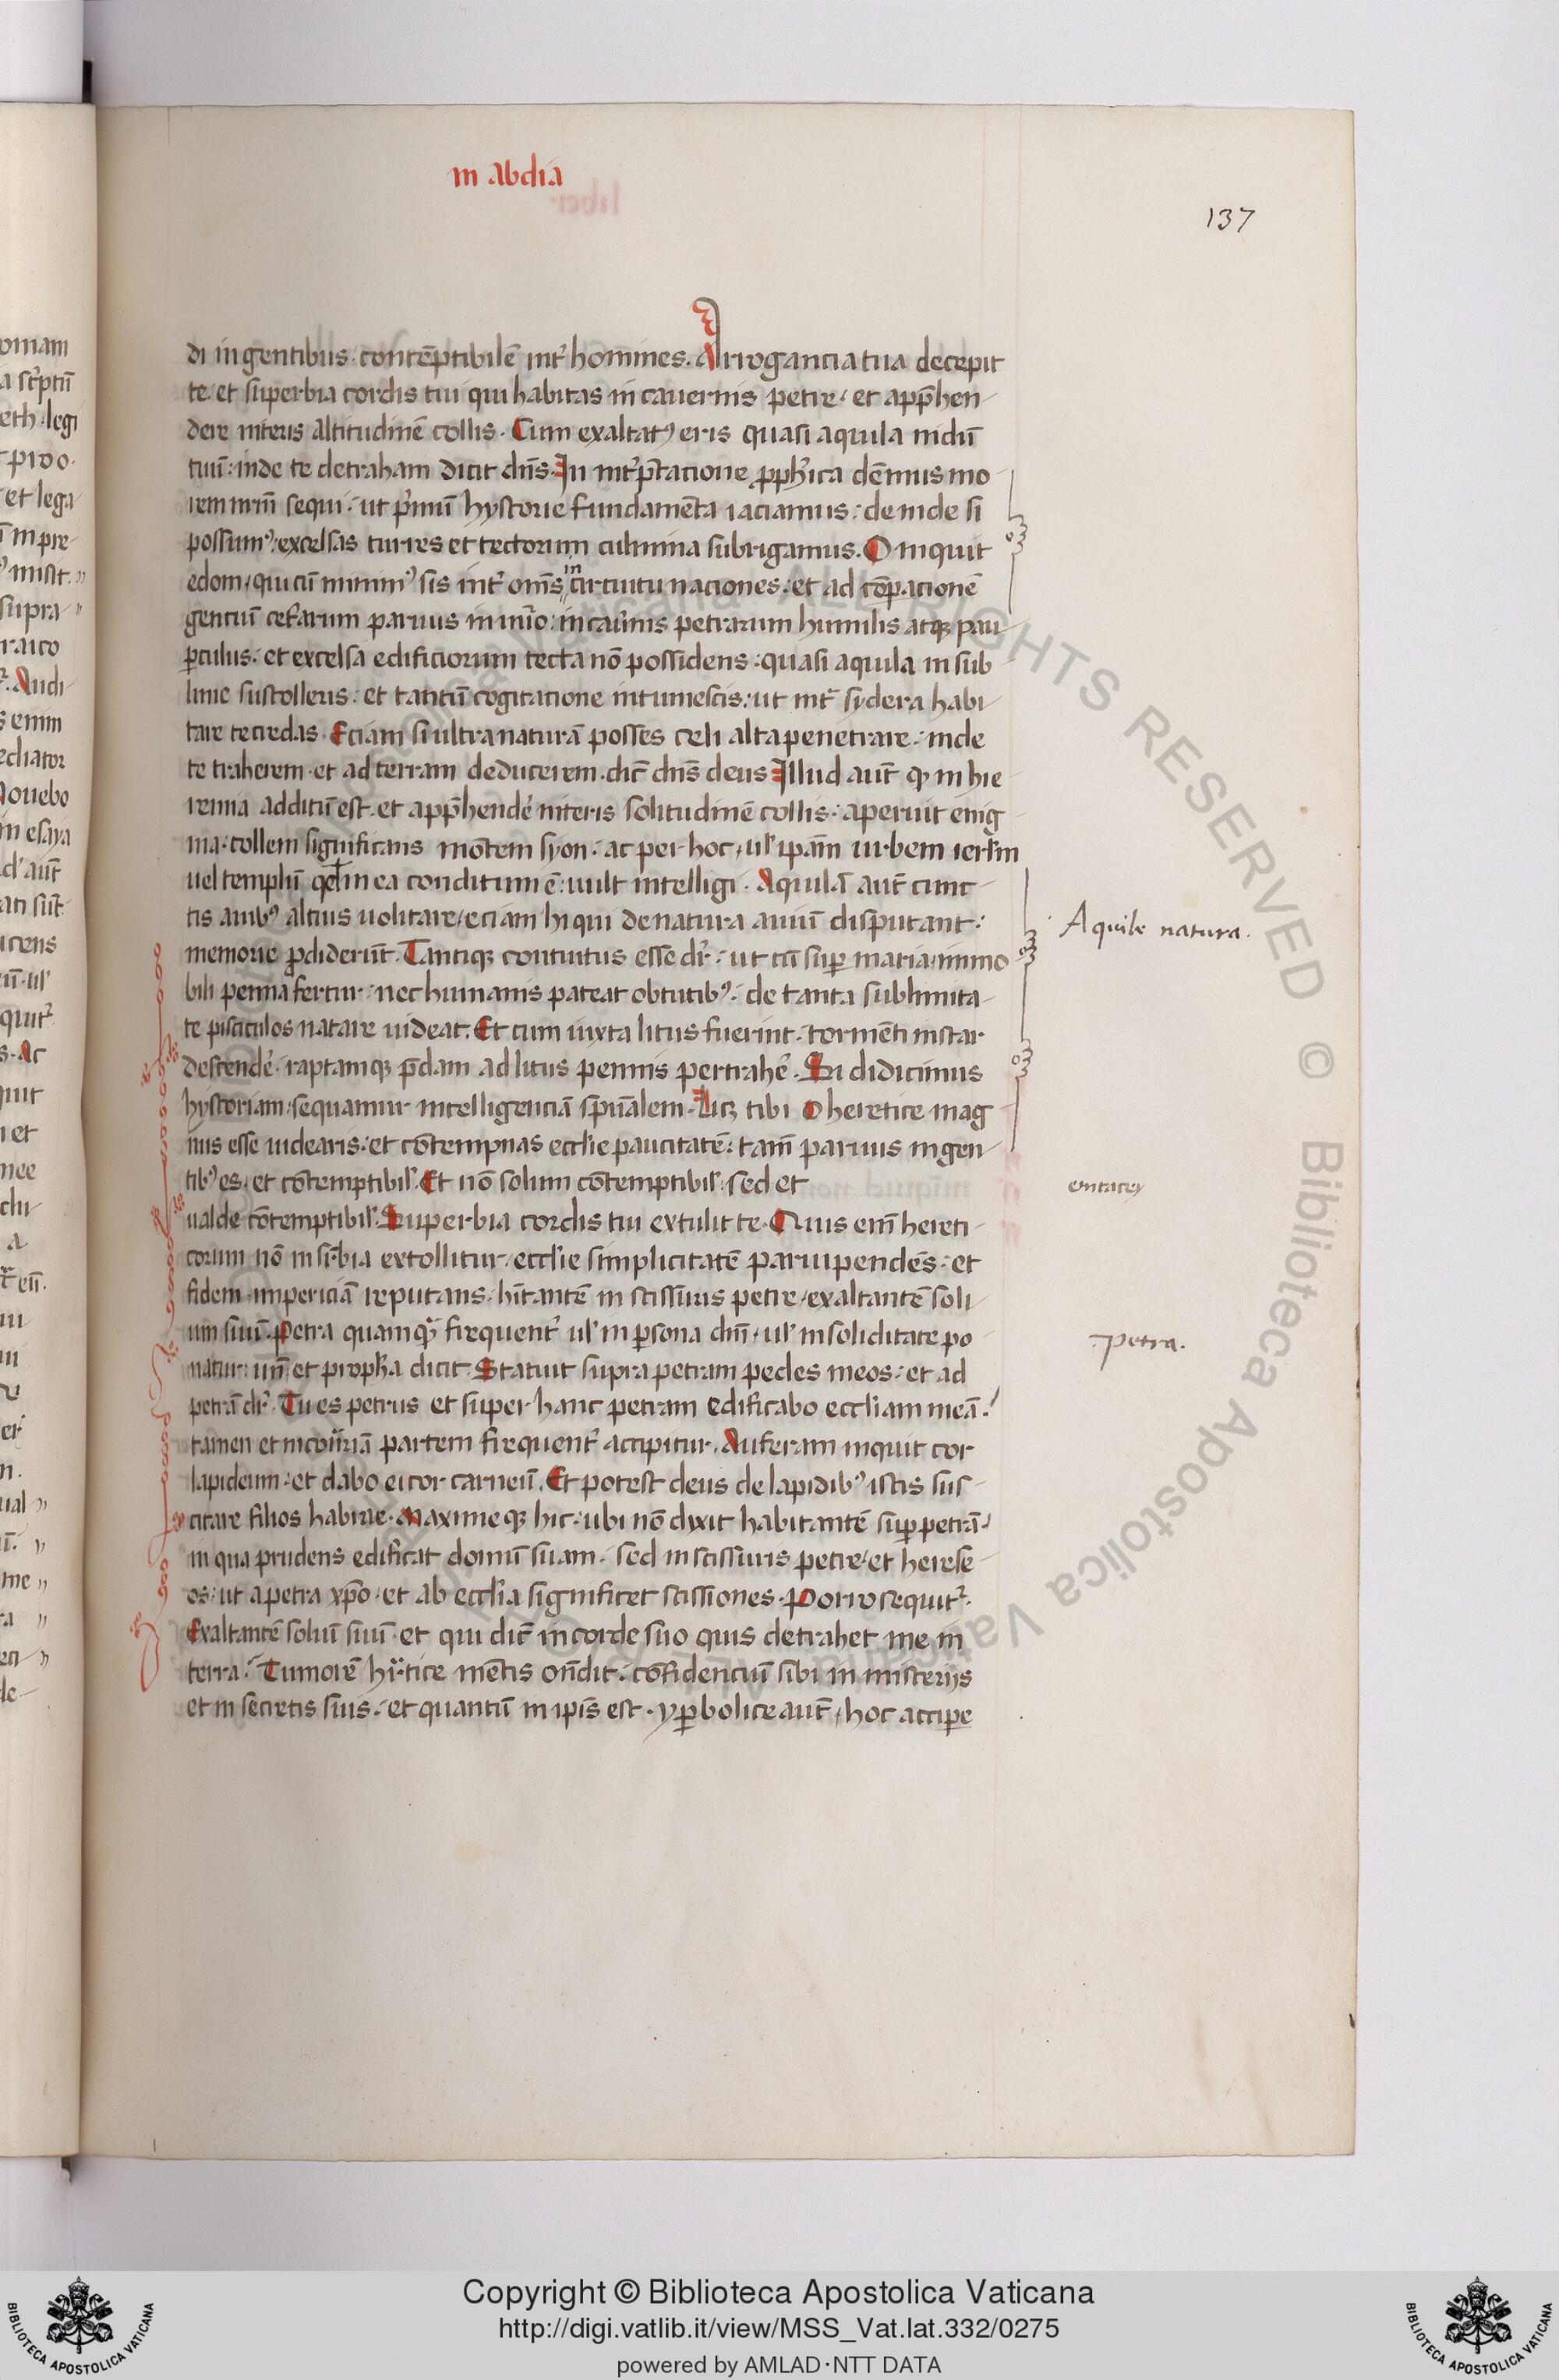 in abdia
137
di in gentibus. contēptibilē int̃ homines. Arrogancia tua decepit
te. et superbia cordis tui qui habitas in cauernis petre. et app̃hen
dere niteris altitudinē collis. Cum exaltatꝰ eris quasi aquila nidū
tuū: inde te detraham dicit dñs. In int̃p̃tacione ꝓph̃ica dẽmus mo
rem nr̃m sequi. ut p̃mū hystorie fundamẽta iaciamus: deinde si
possumꝰ: excelsas turres et tectorum culmina subrigamus. O inquit
edom, qui cū minimꝰ sis int̃ om̃s in circuitu naciones: et ad cõpacionē
gentiū cet̃arum paruus in nũo: in cau̾nis petrarum humilis atqꝫ pau
ꝑculus: et excelsa edificiorum tecta nõ possidens: quasi aquila in sub
lime sustolleris: et tantū cogitacione intumescis: ut int̃ sydera habi
tare te credas. Eciam si ultra naturā posses celi alta penetrare: inde
te traherem. et ad terram deducerem. dic̃ dñs deus. Illud aut̃ qꝫ in hie
remia additū est. et app̃hende̾ niteris solitudinē collis: aperuit enig
ma: collem significans mõtem syon. ac per hoc, ul̾ ip̃am urbem ierl̃m
uel templū qd̾ in ea conditum ẽ: uult intelligi. Aquilā aut̃ cunc
tis auibꝰ altius uolitare, eciam hi qui de natura auiū disputant:
memorie ꝓdiderũt. Tantiqꝫ contuitus esse dr̃: ut cū suꝑ maria immo
bili penna fertur: nec humanis pateat obtutibꝰ: de tanta sublimita
te pisciculos natare uideat. Et cum iuxta litus fuerint. tormẽti instar
descende̾. raptamqꝫ p̃dam ad litus pennis pertrahe̾. Si didicimus
hystoriam: sequamur intelligenciā sp̃ualem. Licꝫ tibi o heretice mag
nus esse uidearis: et cõtempnas eccl̃ie paucitatē: tam̃ paruus in gen
tibꝰ es. et cõtemptibil̾. Et nõ solum cõtemptibil̾. sed et
ualde cõtemptibil̾. Superbia cordis tui extulit te. Quis em̃ hereti
corum nõ in sr̃bia extollitur, eccl̃ie simplicitatē paruipendẽs: et
fidem imperičiā reputans. hĩtantē in scissuris petre, exaltantē soli
um suū. Petra quamqꝫ̃ frequent̃ ul̾ in ꝑsona dñi, ul̾ in soliditate po
natur: uñ et proph̃a dicit. Statuit supra petram pedes meos: et ad
petrā dr̃. Tu es petrus et super hanc petram edificabo eccl̃iam meā:
tamen et in cõt̾riā partem frequent̃ accipitur. Auferam inquit cor
lapideum: et dabo ei cor carneū. Et potest deus de lapidibꝰ istis sus
citare filios habrae. Maximeqꝫ hic: ubi nõ dixit habitantē suꝑ petrā:
in qua prudens edificat domū suam. sed in scissuris petre, et herese
os: ut a petra xp̃o. et ab eccl̃ia significet scissiones. Porro sequit̃.
Exaltantē soliū suū. et qui dic̃ in corde suo quis detrahet me in
terra. Tumorē he̾tice mẽtis on̄dit: cõfidenciū sibi in misterijs
et in secretis suis: et quantū in ip̃is est. yꝑbolice aut̃, hoc accipe
Aquile natura.
petra.
Copyright © Biblioteca Apostolica Vaticana
http://digi.vatlib.it/view/MSS_Vat.lat.332/0275
powered by AMLAD·NTT DATA
ALL RIGHTS RESERVED © Biblioteca Apostolica Vaticana
BIBLIOTECA APOSTOLICA VATICANA
BIBLIOTECA APOSTOLICA VATICANA